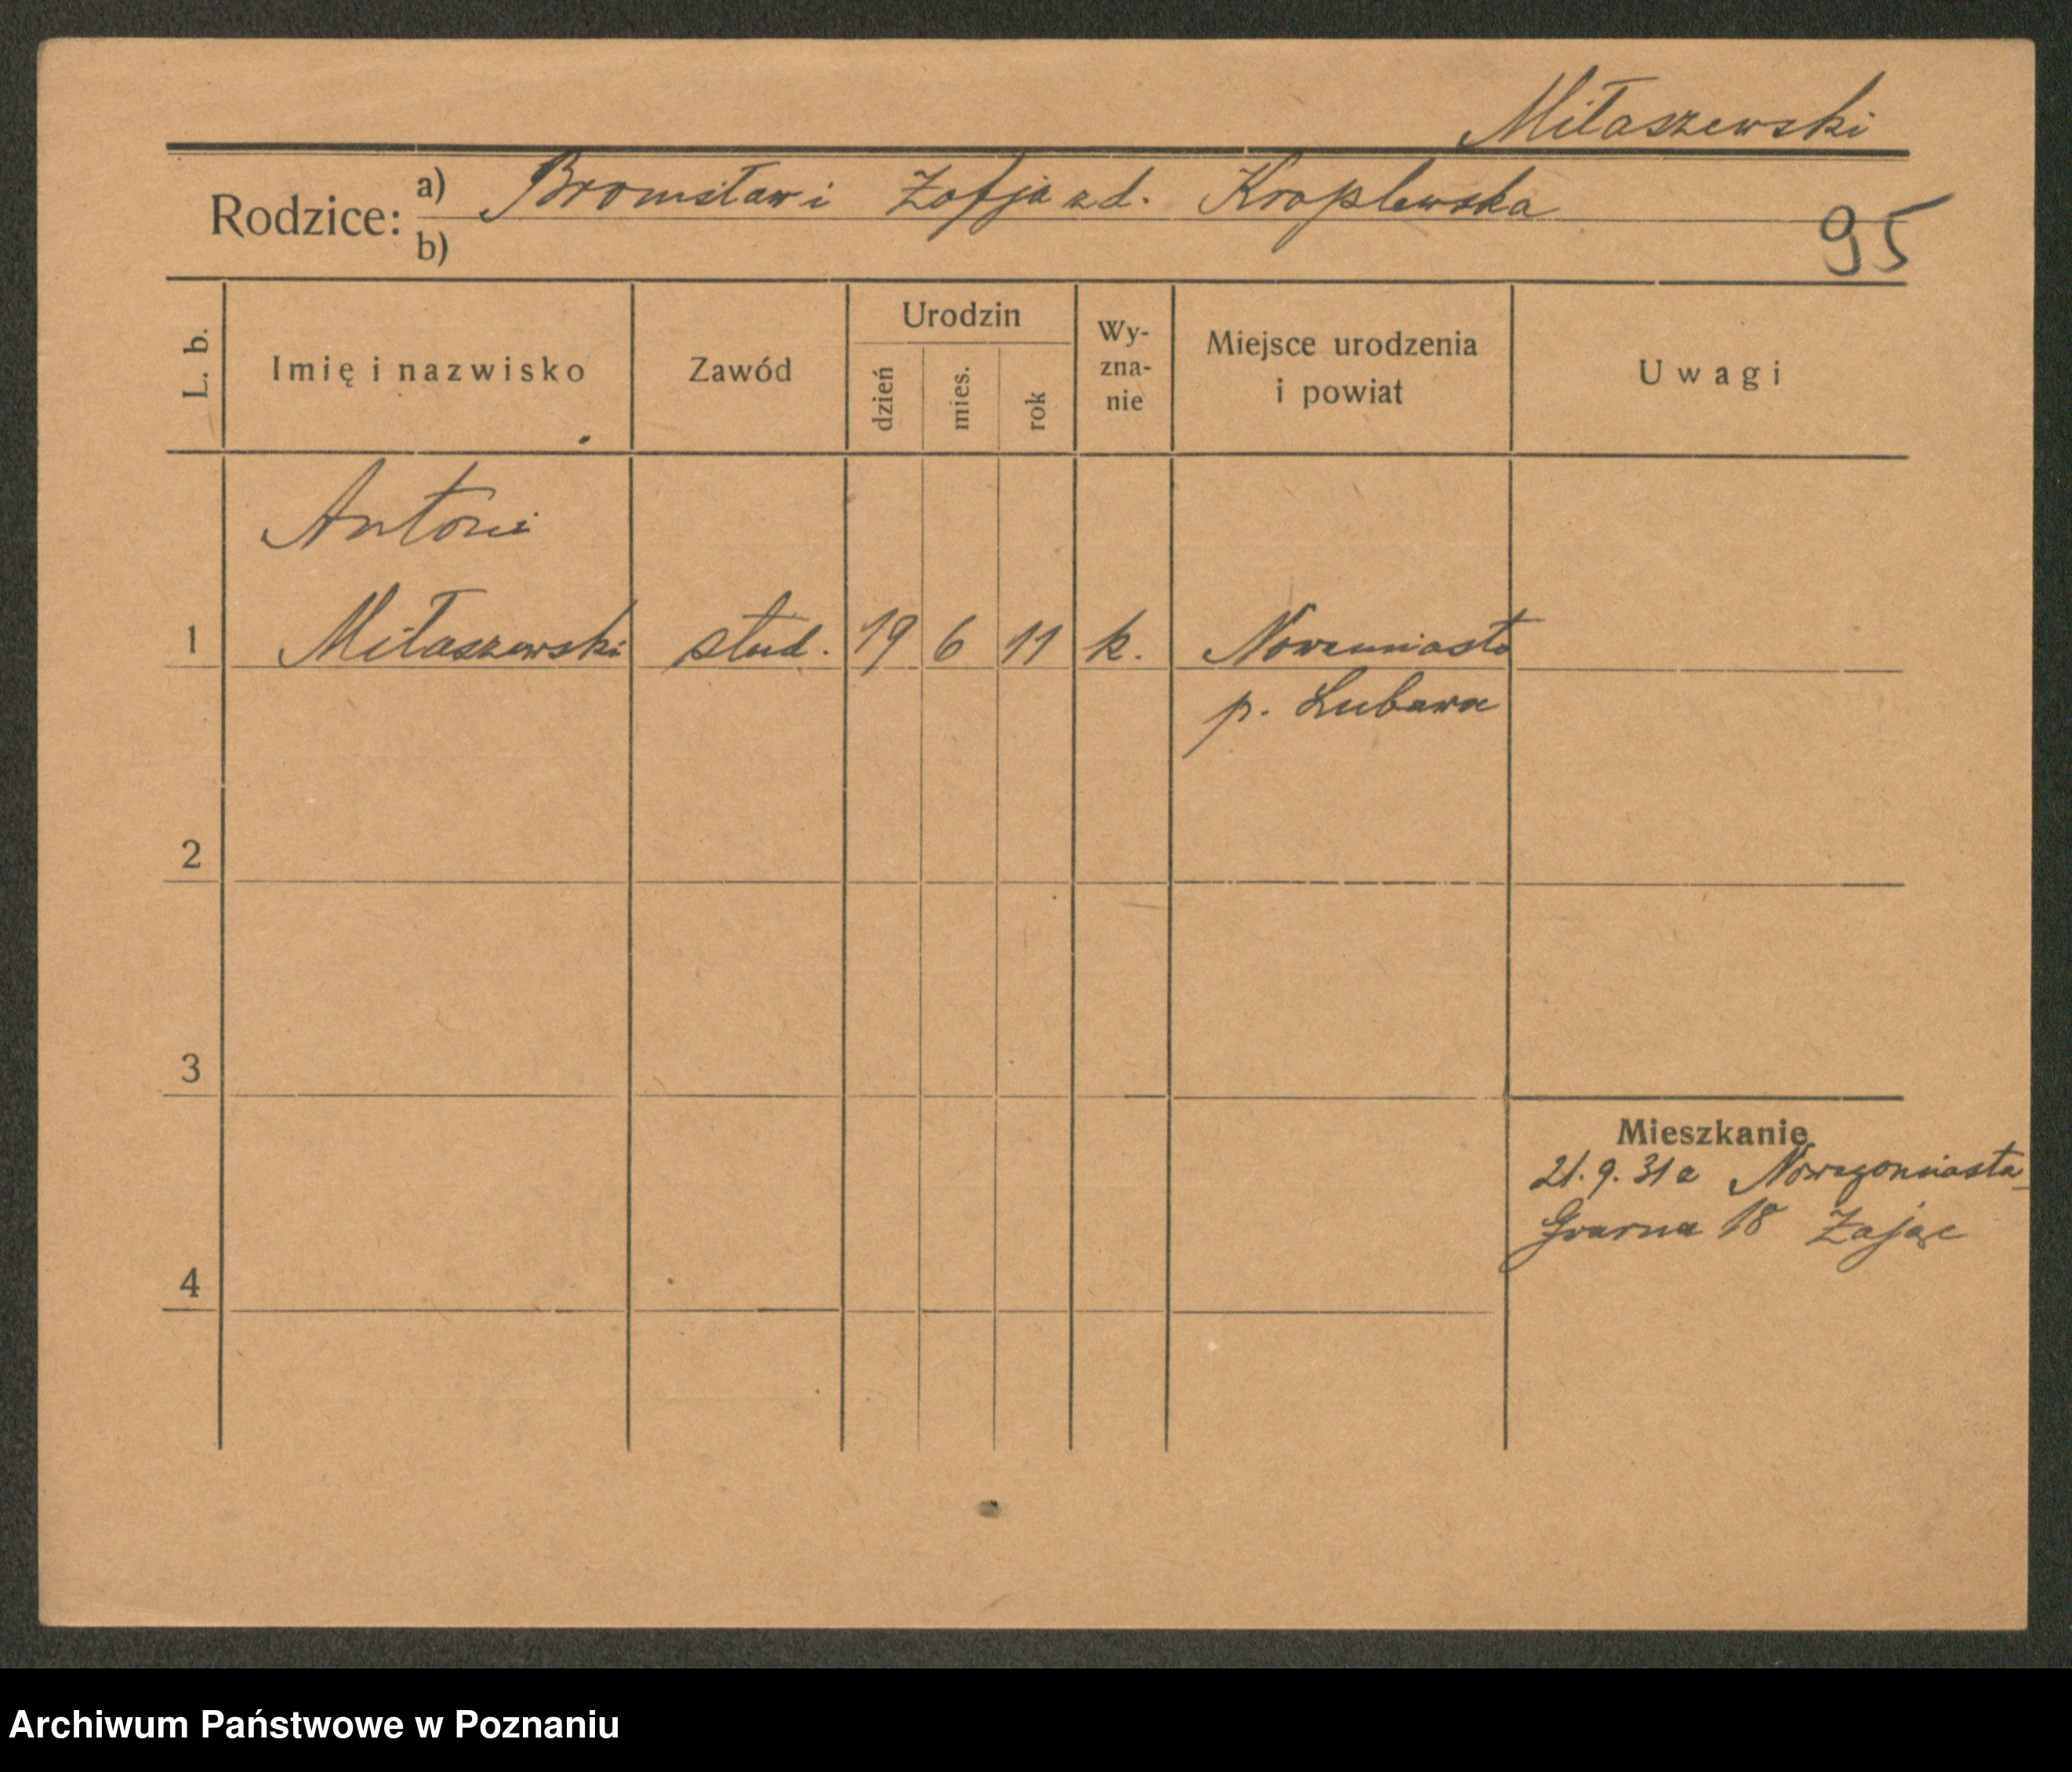 Miłaszewski
Rodzice: a) Bronisław i Zofja zd. Kroplewska
b)
95
L. b. Imię i nazwisko Zawód Urodzin dzień mies. rok Wy-zna-nie Miejsce urodzenia i powiat Uwagi
Antoni
1 Miłaszewski stud. 19 6 11 k. Nowemiasto
p. Lubawa
2
3
Mieszkanie
21.9.31 z Nowegomiasta
Gwarna 18 Zając
4
Archiwum Państwowe w Poznaniu